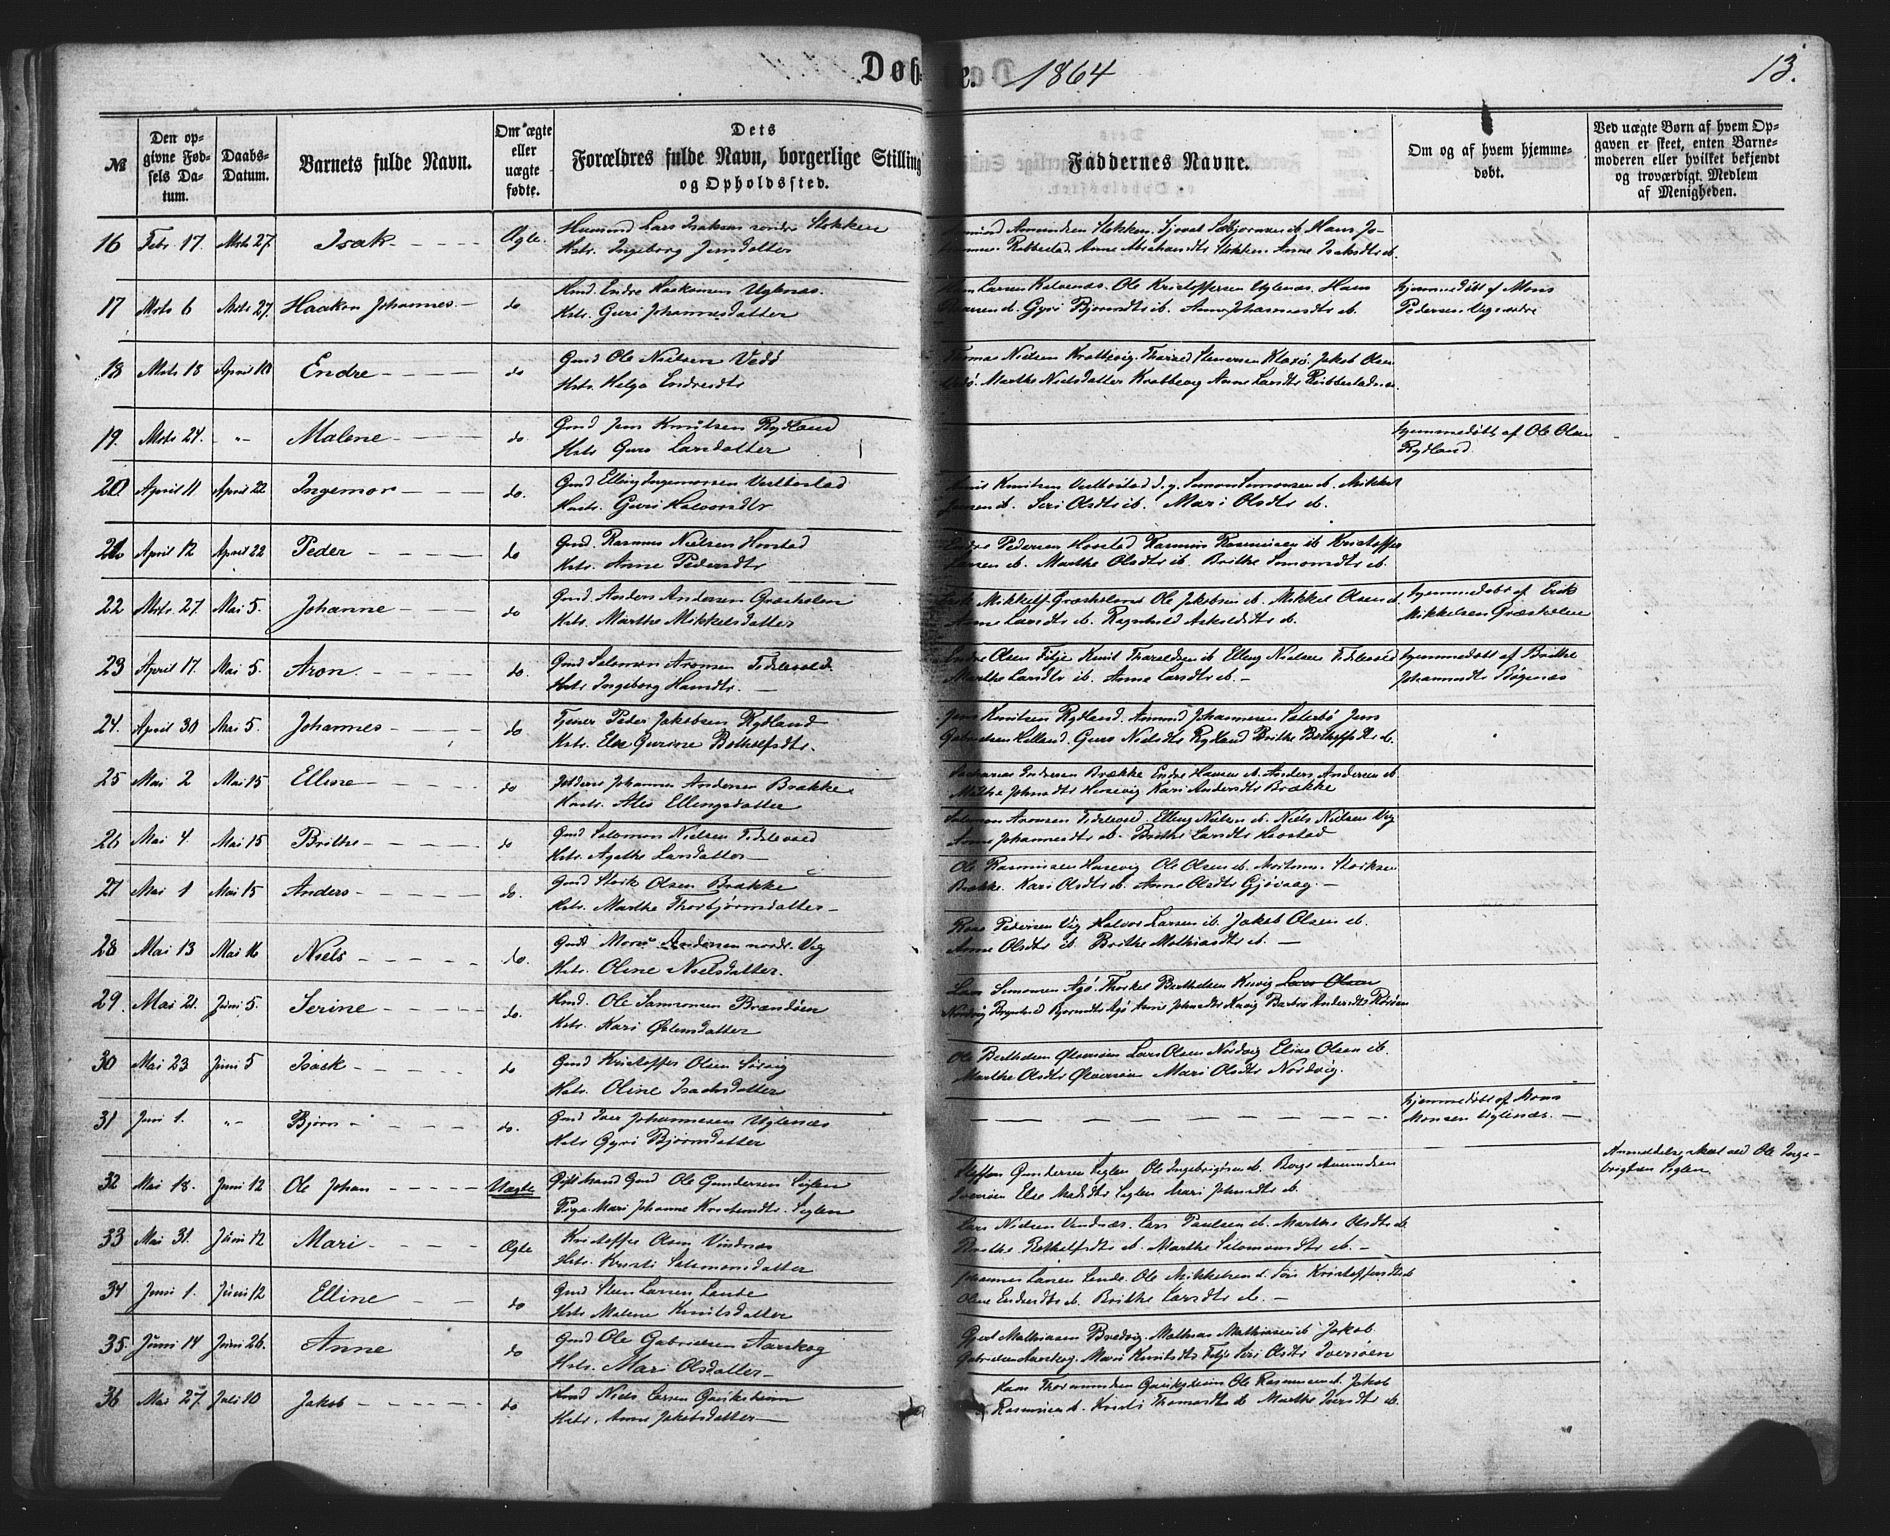 Døbte. 1864
13.
№
Den opgivne Fødsels Datum.
Daabs-Datum.
Barnets fulde Navn.
Om ægte eller uægte fødte.
Dets Forældres fulde Navn, borgerlige Stilling og Opholdssted.
Faddernes Navne.
Om og af hvem hjemmedøbt.
Ved uægte Børn af hvem Opgaven er skeet, enten Barnemoderen eller hvilket bekjendt og troværdigt Medlem af Menigheden.
16 Febr 17. Mrts 27. Isak Ægte. Husmand Lars Isaksen søndre Stokken
Hstr. Ingeborg Jensdatter
Amundsen Stokken. Sjovat Bjørnsen ib. Hans Jo-
Rabbestad. Anne Abrahamsdtr Stokken. Anne Isaksdtr ib.
17 Mrts 6 Mrts 27. Haakon Johannes do Hmd. Endre Haakonsen Uglenæs.
Hstr. Guri Johannesdatter
Larsen Kalvenæs. Ole Kristoffersen Uglenæs. Hans
Gyri Bjørnsdtr ib. Anne Johannesdtr ib.
hjemmedøbt af Mons
Pedersen
18 Mrts 18 April 10 Endre do Gmd Ole Nielsen Vedø
Hstr. Helga Endresdtr
Thomas Nielsen Krabbevig. Stenersen Jakob Olsen
Vedø. Marthe Nielsdatter Krabbevig Anne Larsdtr
19. Mrts 24. -"- Malene do Gmd Jens Knutsen Rydland
Hstr. Guro Larsdatter
hjemmedøbt af Ole Olsen
Rydland
20 April 11 April 22 Ingemor do. Gmd Elling Ingemorsen Vestbostad
Hustr. Guri Halvorsdtr
Knutsen Vestbostad Simon Simonsen ib. Mikkel
Jensen ib. Siri Olsdtr ib. Mari Olsdtr ib.
21. April 12 April 22 Peder do Gmd. Rasmus Nielsen Hovstad
Hstr. Anne Pedersdtr
Pedersen Hovstad Rasmus Rasmussen ib Kristoffer
Larsen ib. Marthe Olsdtr ib. Brithe Simonsdtr ib.
22 Mrts. 27 Mai 5. Johanne do Gmd. Anders Andersen Græsholm
Hstr. Marthe Mikkelsdatter
Erik Mikkels. Græsholm Ole Jakobsen ib. Mikkel Olsen ib
Anne Larsdtr ib. Ragnhild ib.
hjemmedøbt af Erik
Mikkelsen Græsholm
23 April 17 Mai 5. Aron do. Gmd Salomon Aronsen Tidslevold
Hstr Ingeborg Hansdtr.
Endre Olsen Fitje Knut Tharaldsen ib Elling Nielsen Tidslevold
Marthe Larsdtr ib. Anne Larsdtr ib.
hjemmedøbt af Brithe
Johannesdtr Bøgenæs
24. April 30 Mai 5. Johannes do Tjener Peder Jakobsen Rydland
Hstr. Else Gurine Bothelfsdtr.
Jens Knutsen Rydland. Amund Johannesen Jens
Gabrielsen Guro Nielsdtr Rydland Brithe Bothelfsdtr ib.
25 Mai 2 Mai 15 Elline do Johannes Andersen Brække
Hustr. Ales Ellingsdatter
Zacharias Endresen Brække Endre Hansen ib. Anders Andersen ib.
Malthe Johnsdtr Kari Andersdtr Brække
26 Mai 4. Mai 15 Brithe do Gmd Salomon Nielsen Tidslevold
Hstr. Agathe Larsdatter
Salomon Aronsen Tidslevold. Elling Nielsen ib. Niels Nielsen Vig
Anne Johannesdtr ib. Brithe Larsdtr Hovstad
27 Mai 1 Mai 15 Anders do. Gmd Stork Olsen Brække
Hstr. Marthe Thorbjørnsdatter
Ole Rasmussen Ole Olsen ib. Storksen
Brække. Kari Olsdtr ib. Anne Olsdtr Gjøvaag.
28 Mai 13 Mai 16 Niels do. Gmd Mons Andersen nordr. Vig
Hstr. Oline Nielsdatter.
Pedersen Vig Halvor Larsen ib. Jakob Olsen ib.
Anne Olsdtr ib. Brithe Mathiasdtr ib.
29. Mai 21. Juni 5. Serine do. Hmd. Ole Samsonsen Brandøen
Hstr. Kari Østensdatter
Lars Simonsen Agø. Thorkel Berthelsen Lars Olsen
Nordvig Brynhild Agø Anne Johnsdtr
30 Mai 23 Juni 5 Isack do Gmd Kristoffer Olsen Sørvig
Hstr. Oline Isachsdatter
Ole Berthelsen Øklversøen Lars Olsen Nordvig Elias Olsen ib.
Marthe Olsdtr Mari Olsdtr Nordvig.
31 Juni 1. -"- Bjørn do. Gmd Iver Johannesen Uglenæs
Hstr Gyri Bjørnsdatter
hjemmedøbt af Mons
Monsen Uglenæs.
32 Mai 18. Juni 12 Ole Johan Uægte Ole Gundersen Siglen
Pige Mari Johanne Siglen
Steffen Gundersen Siglen Ole Ingebrigtsen ib. Amundsen
Iversøen Else Siglen Mari Johnsdtr ib.
Anmeldelse skeet ved Ole Inge-
brigtsen Siglen
33 Mai 31. Juni 12 Mari Ægte Kristoffer Olsen Vindnæs
Hstr. Kristi Salomonsdatter
Lars Nielsen Vindnæs. Lars Paulsen ib. Marthe Olsdtr ib
Brithe Bothelfsdtr ib. Marthe Salomonsdtr ib.
34 Juni 1. Juni 12 Elline do Gmd Sten Larsen Lande
Hstr Malene Knutsdatter
Johannes Larsen Lande. Ole Mikkelsen Siri Kristoffersdtr ib
Oline Endresdtr ib. Brithe Larsdtr ib.
35. Juni 14 Juni 26. Anne do Gmd Ole Gabrielsen Aarskog
Hstr. Mari Olsdatter
Gjert Mathiasen Bredvig. Mathias Mathiasen ib Jakob
Gabrielsen Aarskog. Mari Knutsdtr Fitje Siri Olsdtr Iversøen
36 Mai 27 Juli 10 Jakob do Hmd Niels Larsen Oureksheim
Hstr. Anne Jakobsdatter
Thormundsen Ole Rasmussen Jakob
Rasmussen ib. Kristi Thomasdtr ib Marthe Iversdtr ib.